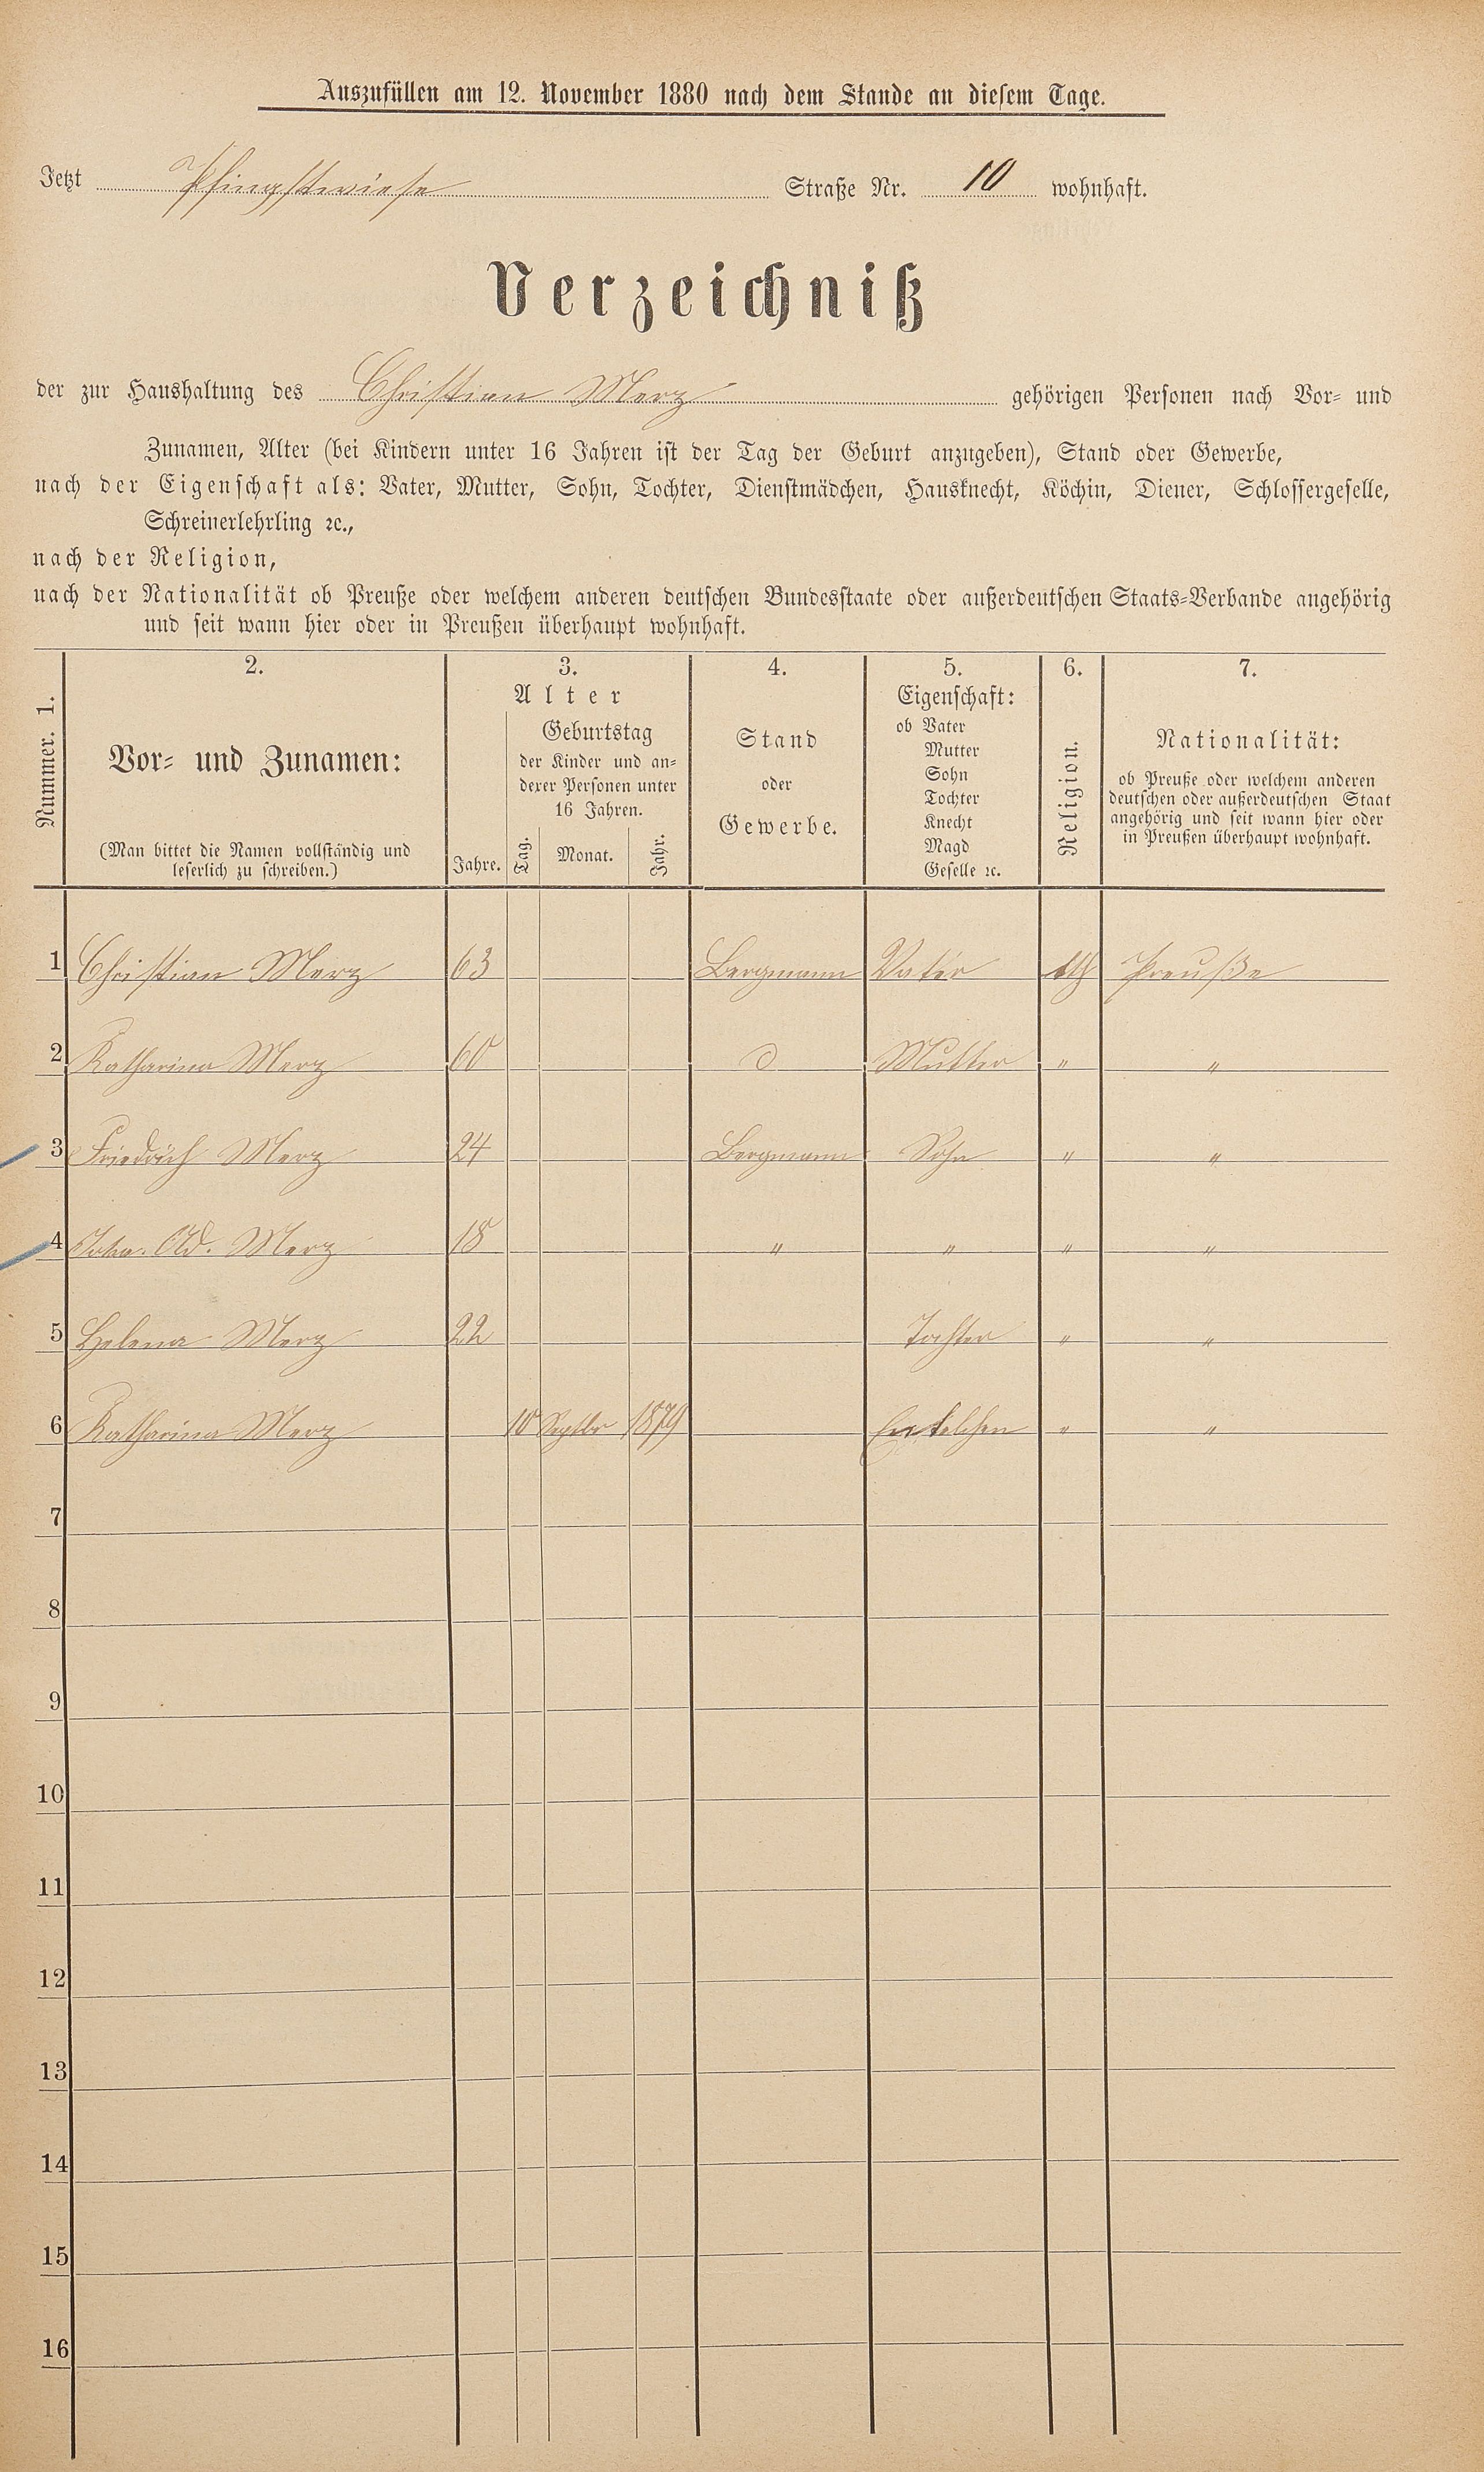 Auszufüllen am 12. November 1880 nach dem Stande an diesem Tage.
Jetzt Pfingstwiese Straße Nr. 10 wohnhaft.
Verzeichniß
der zur Haushaltung des Christian Merz gehörigen Personen nach Vor- und
Zunamen, Alter (bei Kindern unter 16 Jahren ist der Tag der Geburt anzugeben), Stand oder Gewerbe,
nach der Eigenschaft als: Vater, Mutter, Sohn, Tochter, Dienstmädchen, Hausknecht, Köchin, Diener, Schlossergeselle,
Schreinerlehrling ꝛc.,
nach der Religion,
nach der Nationalität ob Preuße oder welchem anderen deutschen Bundesstaate oder außerdeutschen Staats-Verbande angehörig
und seit wann hier oder in Preußen überhaupt wohnhaft.
Nummer. 1.
2.
Vor- und Zunamen:
(Man bittet die Namen vollständig und
leserlich zu schreiben.)
3.
Alter
Jahre.
Geburtstag
der Kinder und an-
derer Personen unter
16 Jahren.
Tag. Monat. Jahr.
4.
Stand
oder
Gewerbe.
5.
Eigenschaft:
ob Vater
Mutter
Sohn
Tochter
Knecht
Magd
Geselle ꝛc.
6.
Religion.
7.
Nationalität:
ob Preuße oder welchem anderen
deutschen oder außerdeutschen Staat
angehörig und seit wann hier oder
in Preußen überhaupt wohnhaft.
1 Christian Merz 63 Bergmann Vater kth Preuße
2 Katharina Merz 60 Mutter " "
3 Friedrich Merz 24 Bergmann Sohn " "
4 Joha. Ad. Merz 18 " " " "
5 Helena Merz 22 Tochter " "
6 Katharina Merz 10 Septbr 1879 Enkelchen " "
7
8
9
10
11
12
13
14
15
16